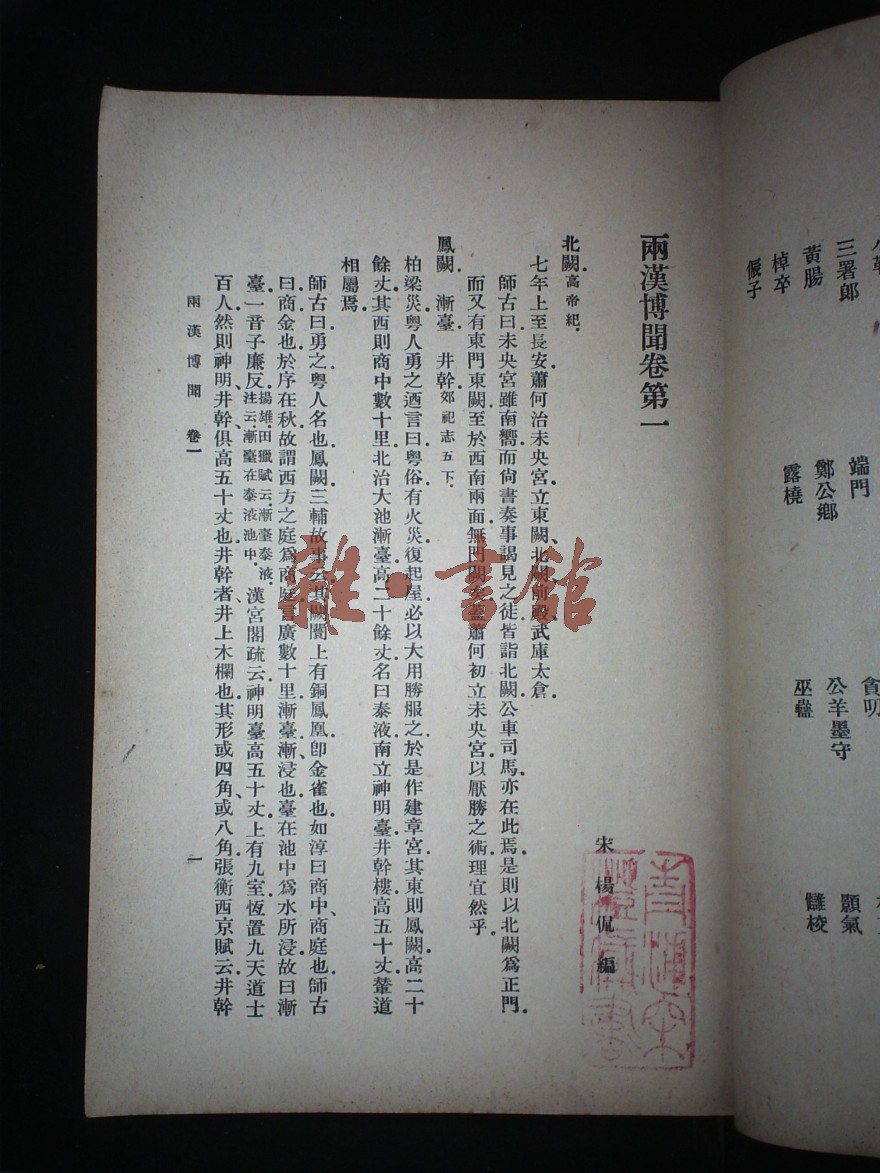 三署郎
黃腸
棹卒
倀子
端門
鄭公鄉
露橈
公羊墨守
巫蠱
顥氣
讎校
兩漢博聞卷第一
宋 楊侃 編
北闕 高帝紀.
七年上至長安蕭何治未央宮立東闕、北闕、前殿、武庫、太倉.
師古曰未央宮雖南嚮而尙書奏事謁見之徒皆詣北闕公車司馬亦在此焉是則以北闕爲正門.
而又有東門東闕至於西南兩面無門闕矣蓋蕭何初立未央宮以厭勝之術理宜然乎.
鳳闕. 漸臺. 井幹 郊祀志五下.
柏梁災粵人勇之迺言曰粵俗有火災復起屋必以大用勝服之於是作建章宮其東則鳳闕高二十
餘丈其西則商中數十里北治大池漸臺高二十餘丈名曰泰液南立神明臺井幹樓高五十丈輦道
相屬焉.
師古曰勇之粵人名也鳳闕三輔故事云其闕圜上有銅鳳凰卽金雀也如淳曰商中、商庭也師古
曰商金也於序在秋故謂西方之庭爲商庭言廣數十里漸臺漸浸也臺在池中爲水所浸故曰漸
臺一音子廉反.揚雄田獵賦云漸臺泰液.注云漸臺在泰液池中.漢宮閣疏云神明臺高五十丈上有九室恆置九天道士
百人然則神明井幹俱高五十丈也井幹者井上木欄也其形或四角、或八角張衡西京賦云井幹
兩漢博聞 卷一
一
雜·書館